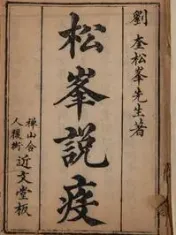 劉奎松峯先生著
松峯說疫
禪山舍
人後街
近文堂板